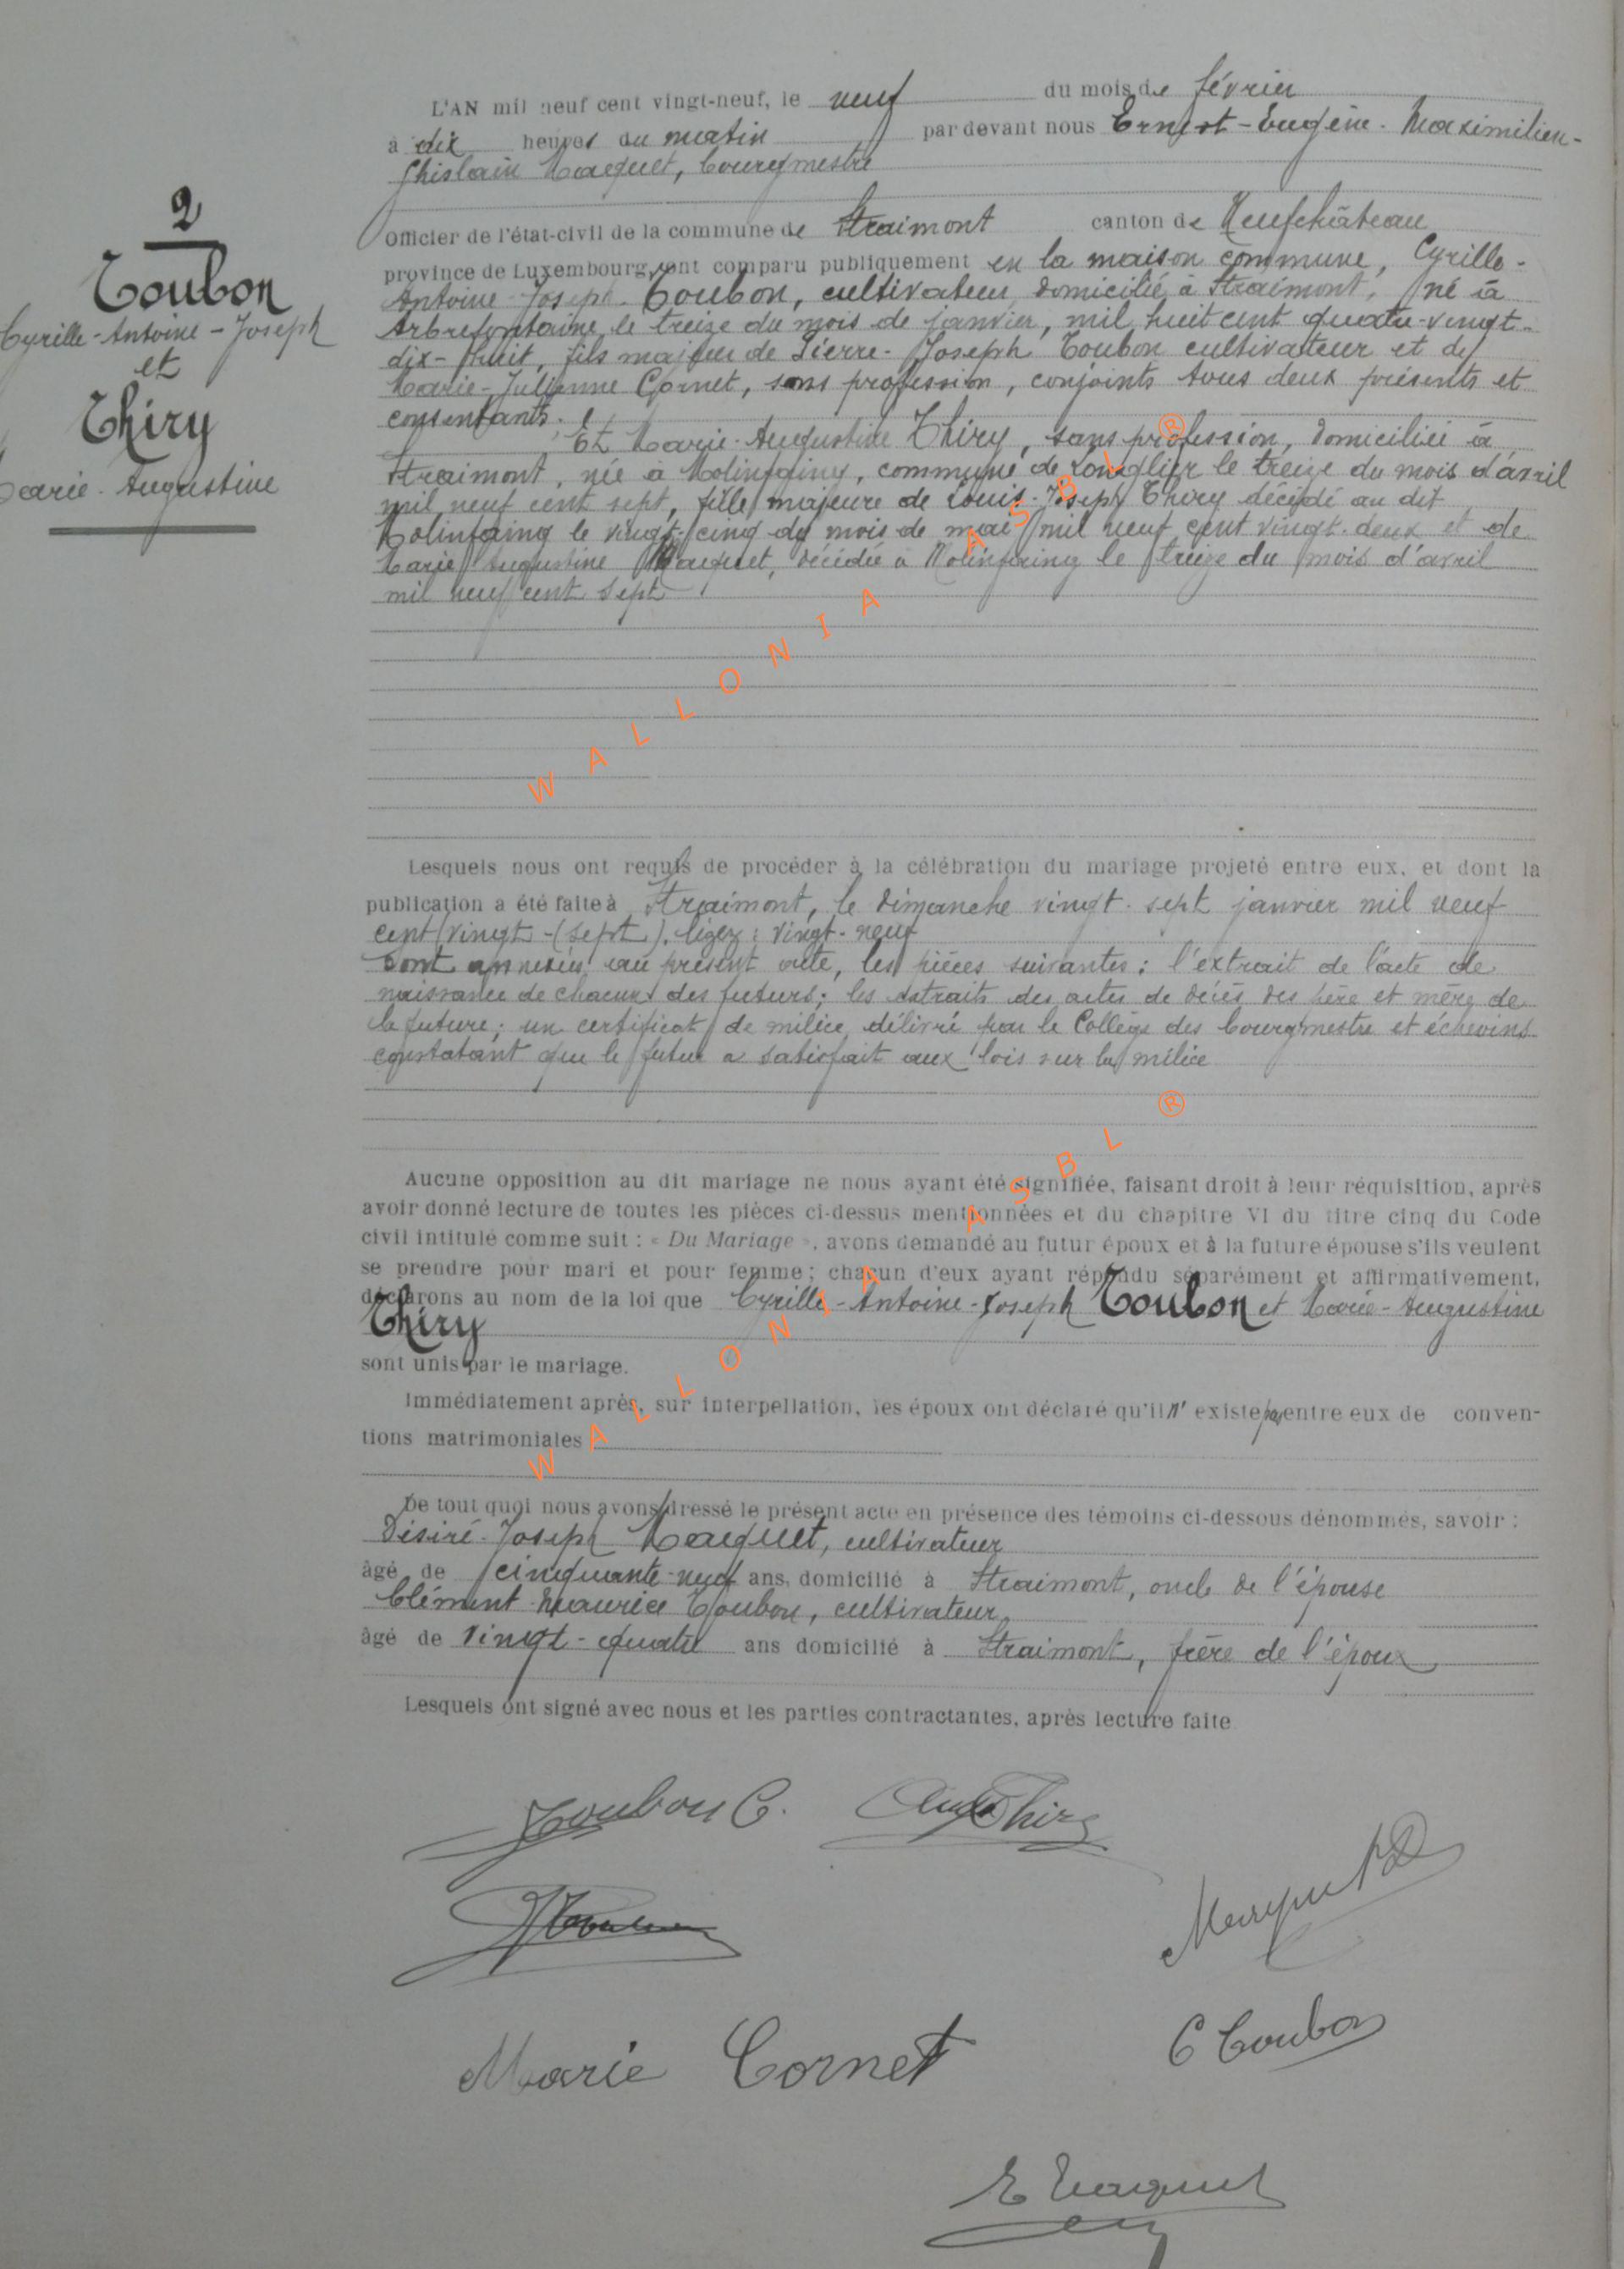 2
Toubon
Cyrille-Antoine-Joseph
et
Thiry
Marie-Augustine
L'AN mil neuf cent vingt-neuf, le neuf du mois de février
à dix heures du matin par devant nous Ernest-Eugène-Maximilien-
Ghislain Maquet, bourgmestre
Officier de l'état-civil de la commune de Straimont canton de Neufchâteau
province de Luxembourg, sont comparu publiquement en la maison commune, Cyrille-
Antoine-Joseph Toubon, cultivateur, domicilié à Straimont, né à
Arbrefontaine, le treize du mois de janvier, mil huit cent quatre-vingt-
dix-huit, fils majeur de Pierre-Joseph Toubon cultivateur et de
Marie-Julienne Cornet, sans profession, conjoints tous deux présents et
consentants.
Et Marie-Augustine Thiry, sans profession, domiciliée à
Straimont, née à Molinfaing, commune de Longlier le treize du mois d'avril
mil neuf cent sept, fille majeure de Louis-Joseph Thiry décédé au dit
Molinfaing le vingt-cinq du mois de mai mil neuf cent vingt-deux et de
Marie Augustine Maquet, décédée à Molinfaing le treize du mois d'avril
mil neuf cent sept
Lesquels nous ont requis de procéder à la célébration du mariage projeté entre eux, et dont la
publication a été faite à Straimont, le dimanche vingt-sept janvier mil neuf
cent vingt-(sept). lisez: vingt-neuf
Sont annexées au présent acte, les pièces suivantes: l'extrait de l'acte de
naissance de chacun des futurs; les extraits des actes de décès des père et mère de
la future; un certificat de milice, délivré par le Collège des bourgmestre et échevins
constatant que le futur a satisfait aux lois sur la milice
Aucune opposition au dit mariage ne nous ayant été signifiée, faisant droit à leur réquisition, après
avoir donné lecture de toutes les pièces ci-dessus mentionnées et du chapitre VI du titre cinq du Code
civil intitulé comme suit : « Du Mariage », avons demandé au futur époux et à la future épouse s'ils veulent
se prendre pour mari et pour femme; chacun d'eux ayant répondu séparément et affirmativement,
déclarons au nom de la loi que Cyrille-Antoine-Joseph Toubon et Marie-Augustine
Thiry
sont unis par le mariage.
Immédiatement après, sur interpellation, les époux ont déclaré qu'il n'existe pas entre eux de conven-
tions matrimoniales
De tout quoi nous avons dressé le présent acte en présence des témoins ci-dessous dénommés, savoir :
Désiré-Joseph Maquet, cultivateur
âgé de cinquante-neuf ans, domicilié à Straimont, oncle de l'épouse
Clément-Maurice Toubon, cultivateur
âgé de vingt-quatre ans domicilié à Straimont, frère de l'époux
Lesquels ont signé avec nous et les parties contractantes, après lecture faite
Toubon C. Aug Thiry
Maquet D
Marie Cornet
C Toubon
E Maquet
WALLONIA ASBL ®
WALLONIA ASBL ®